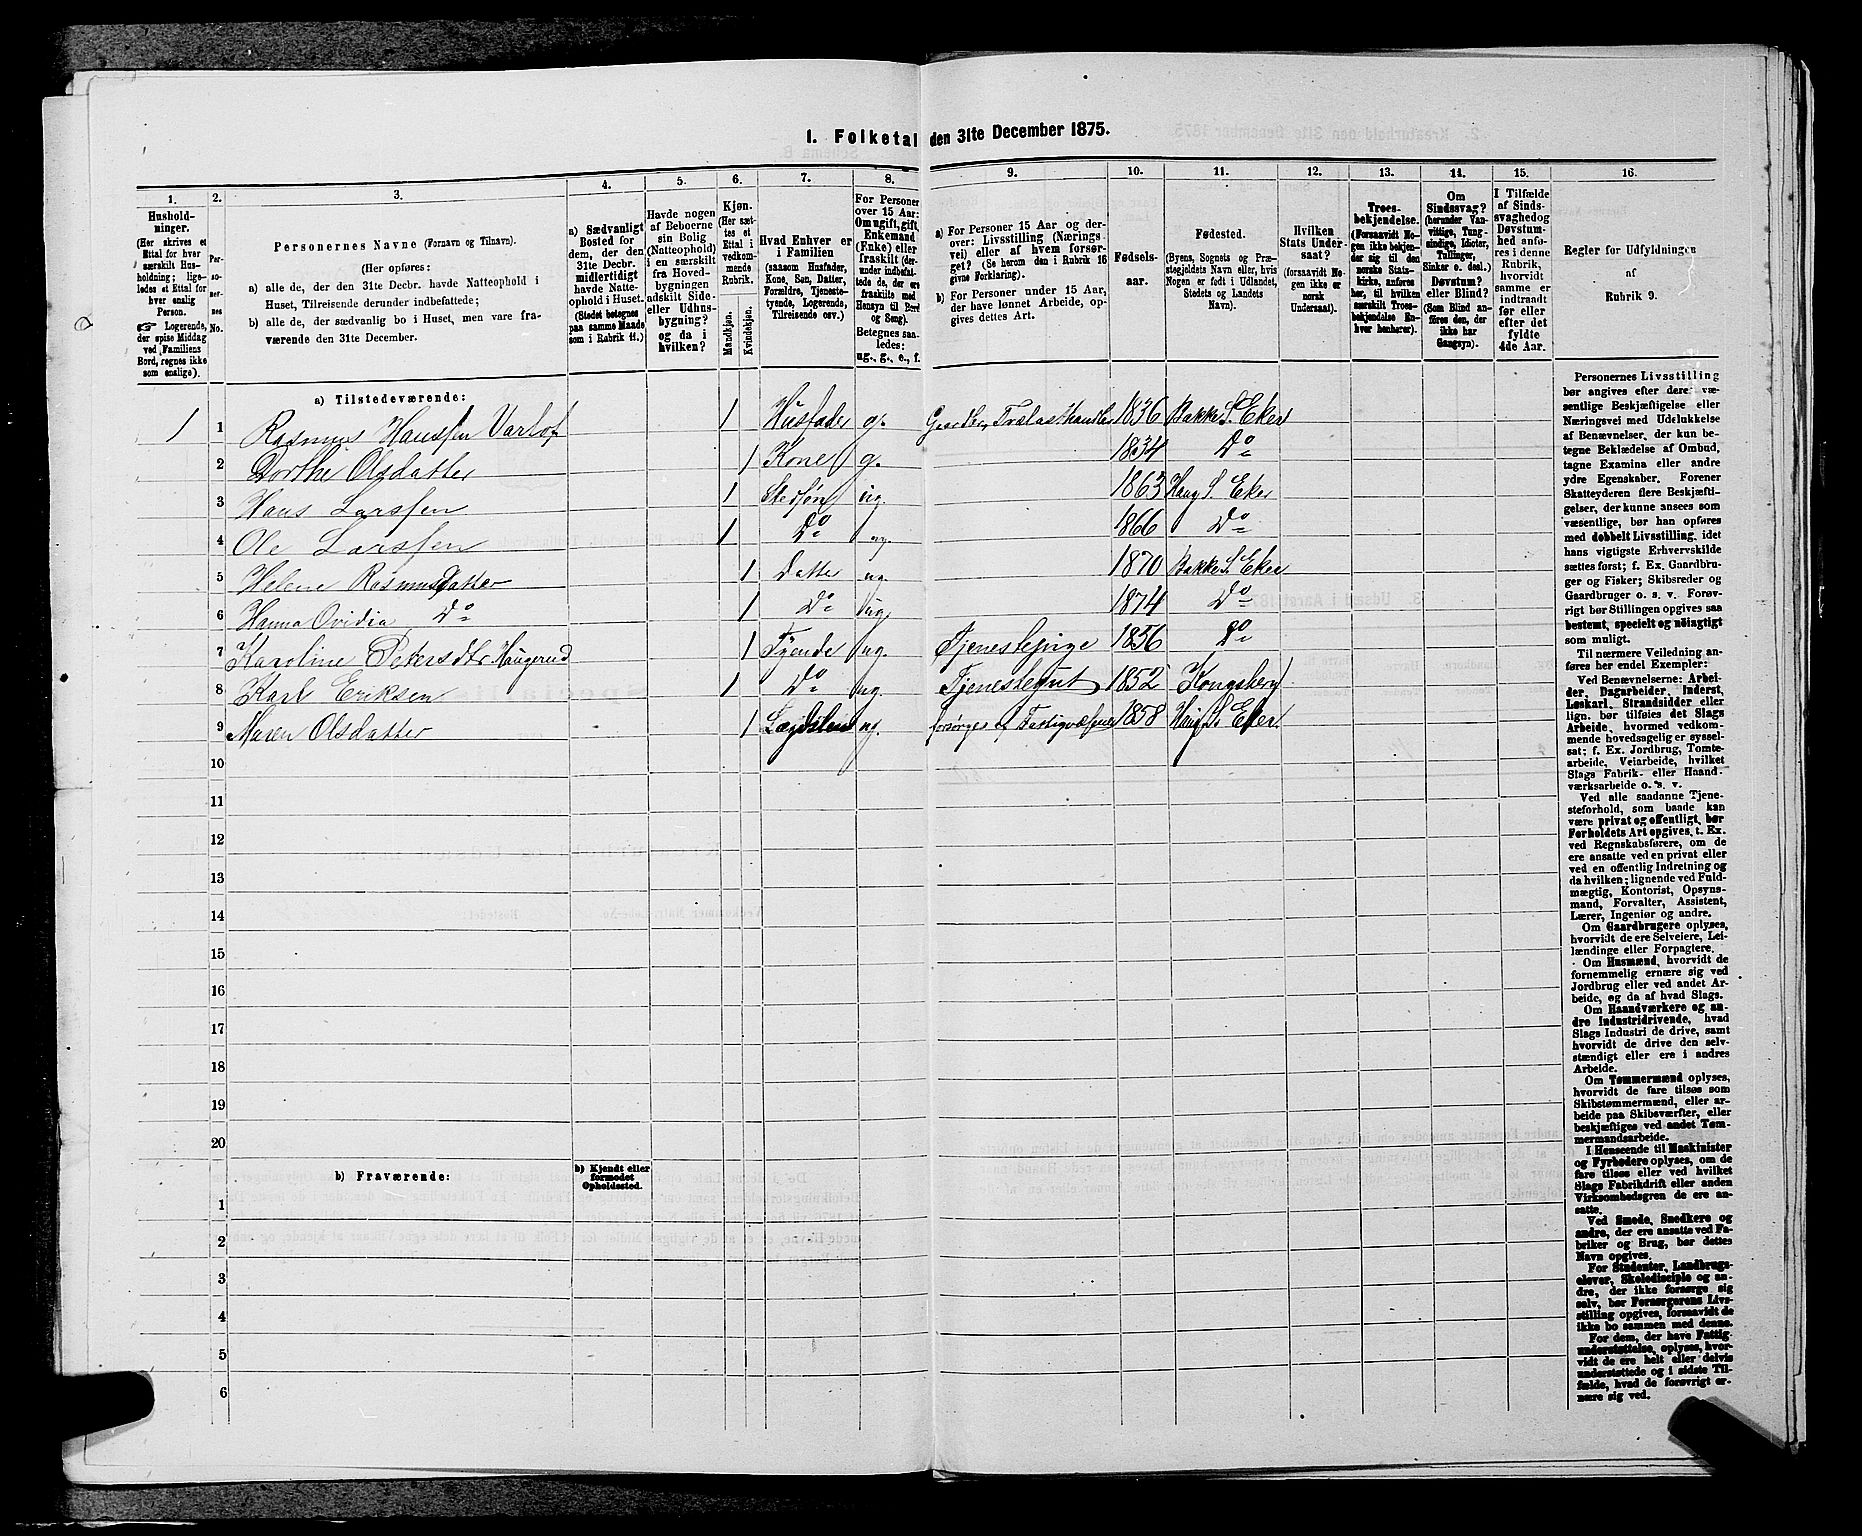 1. Folketal den 31te December 1875.
1. 2. 3. 4. 5. 6. 7. 8. 9. 10. 11. 12. 13. 14. 15. 16.
Hushold-
ninger.
(Her skrives et
Ettal for hver
særskilt Hus-
holdning; lige-
ledes et Ettal for
hver enslig
Person.
☞ Logerende,
der spise Middag
ved Familiens
Bord, regnes ikke
som enslige).
Per-
so-
ner-
nes
No.
Personernes Navne (Fornavn og Tilnavn).
(Her opføres:
a) alle de, der den 31te Decbr. havde Natteophold i
Huset, Tilreisende derunder indbefattede;
b) alle de, der sædvanlig bo i Huset, men vare fra-
værende den 31te December.
a) Sædvanligt
Bosted for
dem, der den
31te Decbr.
midlertidigt
havde Natte-
ophold i Huset.
(Stedet betegnes
paa samme Maade
som i Rubrik 11.)
Havde nogen
af Beboerne
sin Bolig
(Natteophold)
i en særskilt
fra Hoved-
bygningen
adskilt Side-
eller Udhus-
bygning?
og da i
hvilken?
Kjøn.
(Her sæt-
tes et
Ettal i
vedkom-
mende
Rubrik.
Mandkjøn.
Kvindekjøn.
Hvad Enhver er
i Familien
(saasom Husfader,
Kone, Søn, Datter,
Forældre, Tjeneste-
tyende, Logerende,
Tilreisende osv.)
For Personer
over 15 Aar:
Om ugift, gift,
Enkemand
(Enke) eller
fraskilt (der-
under indbefat-
tede de, der ere
fraskilte med
Hensyn til Bord
og Seng).
Betegnes saa-
ledes:
ug., g., e., f.
a) For Personer 15 Aar og der-
over: Livsstilling (Nærings-
vei) eller af hvem forsør-
get? (Se herom den i Rubrik 16
givne Forklaring).
b) For Personer under 15 Aar,
der have lønnet Arbeide, op-
gives dettes Art.
Fødsels-
aar.
Fødested.
(Byens, Sognets og Præ-
stegjeldets Navn eller, hvis
Nogen er født i Udlandet,
Stedets og Landets
Navn).
Hvilken
Stats Under-
saat?
(forsaavidt No-
gen ikke er
norsk
Undersaat).
Troes-
bekjendelse.
(Forsaavidt No-
gen ikke bekjen-
der sig til den
norske Stats-
kirke, anføres
her, til hvilken
særskilt Troes-
bekjendelse En-
hver henhører).
Om
Sindssvag?
(herunder Van-
vittige, Tung-
sindige, Idioter,
Tullinger,
Sinker o. desl.)
Døvstum?
eller Blind?
(Som Blind an-
føres den, der
ikke har
Gangsyn).
I Tilfælde
af Sinds-
svaghed og
Døvstum-
hed anfø-
res i denne
Rubrik,
hvorvidt
samme er
indtraadt
før eller
efter det
fyldte
4de Aar.
Regler for Udfyldningen
af
Rubrik 9.
a) Tilstedeværende:
1 1 Rasmus Hanssen Varlof 1 Husfader g. Gaardbr. Trælasthandler 1836 Bakke S. Eker
2 Dorthe Olsdatter 1 Kone g. 1834 Do
3 Hans Larssen 1 Stedsøn ug. 1863 Haug S. Eker
4 Ole Larssen 1 Do ug 1866 Do
5 Helene Rasmusdatter 1 Datter ug 1870 Bakke S. Eker
6 Hanna Ovidia Do 1 Do ug. 1874 Do
7 Karoline Petersdtr Haugerud 1 Tyende ug. Tjenestepige 1856 Do
8 Karl Eriksen 1 Do ug Tjenestegut 1852 Kongsberg
9 Maren Olsdatter 1 Lægdslem ug. forsørges af Fattigvæsenet 1858 Haug S. Eker
10
11
12
13
14
15
16
17
18
19
20
b) Fraværende:
b) Kjendt eller
formodet
Opholdssted.
1
2
3
4
5
6
Personernes Livsstilling
bør angives efter deres væ-
sentlige Beskjæftigelse eller
Næringsvei med Udelukkelse
af Benævnelser, der kun be-
tegne Beklædelse af Ombud,
tagne Examina eller andre
ydre Egenskaber. Forener
Skatteyderen flere Beskjæfti-
gelser, der kunne ansees som
væsentlige, bør han opføres
med dobbelt Livsstilling, idet
hans vigtigste Erhvervskilde
sættes først; f. Ex. Gaardbru-
ger og Fisker; Skibsreder og
Gaardbruger o. s. v. Forøv-
rigt bør Stillingen opgives saa
bestemt, specielt og nøiagtigt
som muligt.
Til nærmere Veiledning an-
føres her endel Exempler:
Ved Benævnelserne: Arbei-
der, Dagarbeider, Inderst,
Løskarl, Strandsidder eller
lign. bør tilføies det Slags
Arbeide, hvormed vedkom-
mende hovedsagelig er syssel-
sat; f. Ex. Jordbrug, Tomte-
arbeide, Veiarbeide, hvilket
Slags Fabrik- eller Haand-
værksarbeide o. s. v.
Ved alle saadanne Tjene-
steforhold, som baade kan
være privat og offentligt, bør
Forholdets Art opgives, t. Ex.
ved Regnskabsførere, om de
ere ansatte ved en privat eller
ved en offentlig Indretning og
da hvilken; lignende ved Fuld-
mægtig, Kontorist, Opsyns-
mand, Forvalter, Assistent,
Lærer, Ingeniør og andre.
Om Gaardbrugere oplyses,
hvorvidt de ere Selveiere, Lei-
lændinge eller Forpagtere.
Om Husmænd, hvorvidt de
fornemmelig ernære sig ved
Jordbrug eller ved andet Ar-
beide, og da af hvad Slags.
Om Haandværkere og an-
dre Industridrivende, hvad
Slags Industri de drive, samt
hvorvidt de drive den selv-
stændigt eller ere i andres
Arbeide.
Om Tømmermænd oplyses,
hvorvidt de fare tilsøs som
Skibstømmermænd, eller ar-
beide paa Skibsværfter, eller
beskjæftiges ved andet Tøm-
mermandsarbeide.
I Henseende til Maskinister
og Fyrbødere oplyses, om de
fare tilsøs eller ved hvilket
Slags Fabrikdrift eller anden
Virksomhedsgren de ere an-
satte.
Ved Smede, Snedkere og
andre, der ere ansatte ved Fa-
briker og Brug, bør dettes
Navn opgives.
For Studenter, Landbrugs-
elever, Skoledisciple og an-
dre, der ikke forsørge sig
selv, bør Forsørgerens Livs-
stilling opgives, forsaavidt de
ikke bo sammen med denne.
For dem, der have Fattig-
understøttelse, oplyses, hvor-
vidt de ere helt eller delvis
understøttede og i sidste Til-
fælde, hvad de forøvrigt er-
nære sig ved.